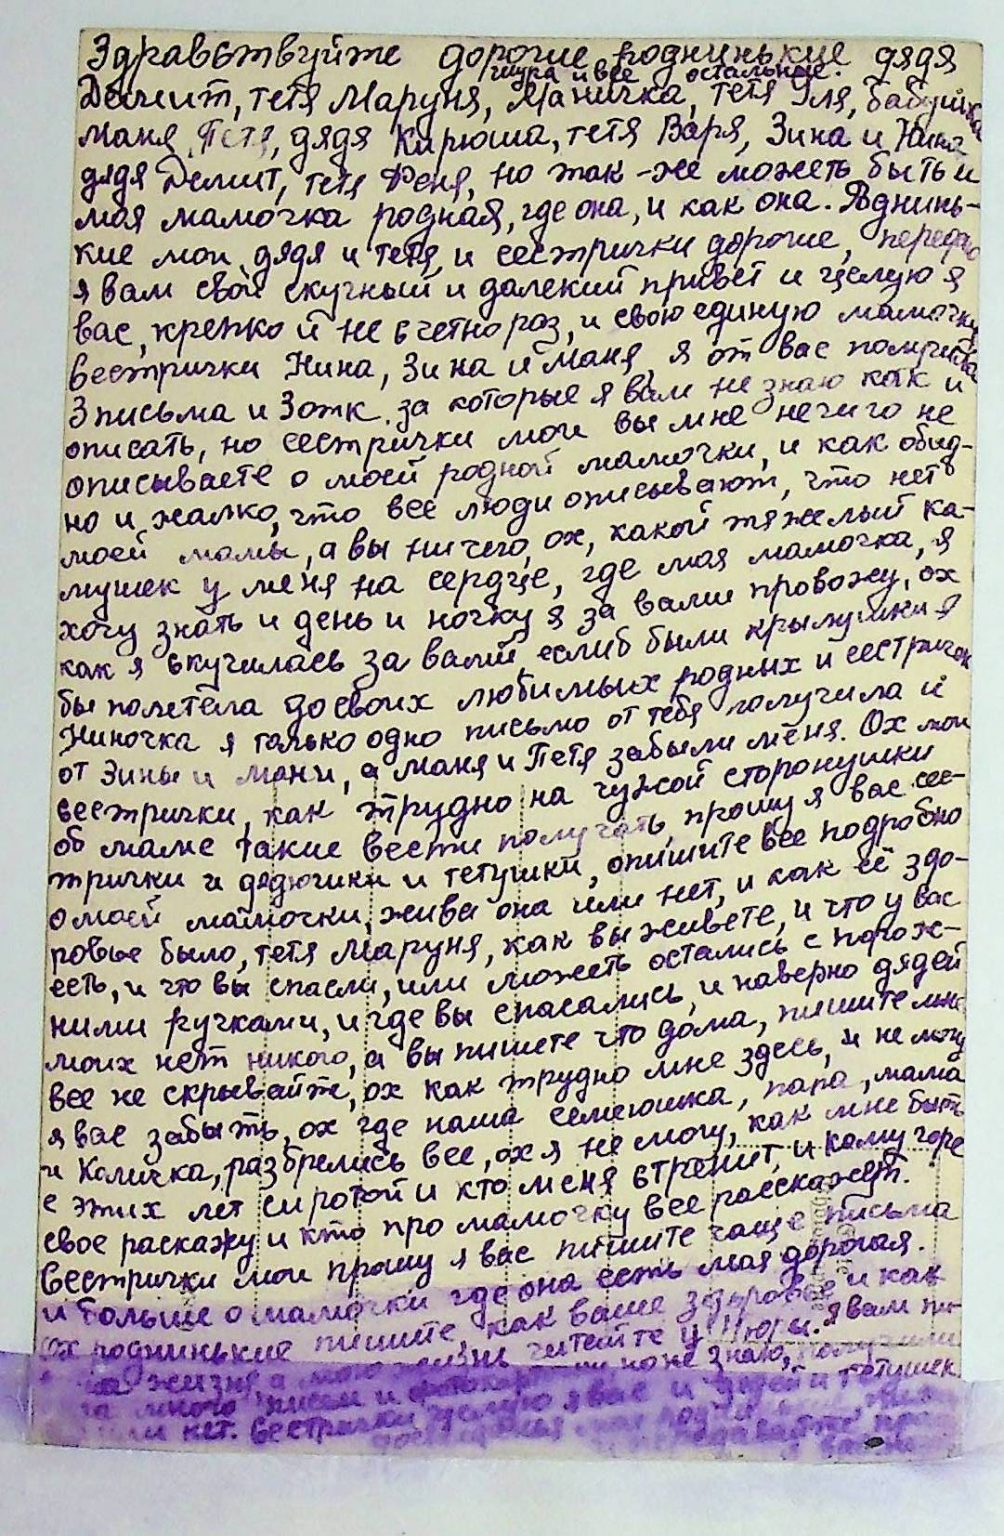 Здравствуйте дорогие роднинькие дядя
шура и все остальные.
Демит, тетя Маруня, Маничка, тетя Уля, бабушка
Маня Петя, дядя Кирюша, тетя Варя, Зина и Нина
дядя Демит, тетя Феня, но так-же можеть быть и
моя мамочка родная, где она, и как она. Роднинь-
кие мои дядя и тетя, и сестрички дорогие, передаю
я вам свой скучный и далекий привет и целую я
вас, крепко и не счетно раз, и свою единую мамочку
Сестрички Нина, Зина и Маня, я от вас получила
3 письма и 3 отк. за которые я вам не знаю как и
описать, но сестрички мои вы мне нечиго не
описываете о моей родной мамочки, и как обид-
но и жалко, что все люди описывают, что нет
моей мамы, а вы ничего, ох, какой тяжелый ка-
мушек у меня на сердце, где моя мамочка, я
хочу знать и день и ночку я за вами провожу, ох
как я скучилась за вами, еслиб были крылушки я
бы полетела до своих любимых родных и сестричок
Ниночка я только одно письмо от тебя получила и
от Зины и Мани, а Маня и Петя забыли меня. Ох мои
сестрички, как трудно на чужой сторонушки
об маме такие вести получать, прошу я вас сес-
трички и дядючики и тетушки, опишите все подробно
о моей мамочки, жива она или нет, и как её здо-
ровье было, тетя Маруня, как вы живете, и что у вас
есть, и что вы спасли, или можеть остались с порож-
ними ручками, и где вы спасались, и наверно дядей
моих нет никого, а вы пишете что дома, пишите мне
все не скрывайте, ох как трудно мне здесь, и не могу
я вас забыть, ох где наша семеюшка, папа, мама
и Количка, разбрелись все, ох я не могу, как мне быть
с этих лет сиротой и кто меня встренит, и кому горе
свое раскажу и кто про мамочку все расскажет.
Сестрички мои прошу я вас пишите чаще письма
и больше о мамочки где она есть моя дорогая.
ох роднинькие пишите, как ваше здоровье и как
жизня, а мою жизнь читейте у Нюры. Я вам пи-
много писем и фотокарт не знаю, получили
или нет. Сестрички целую я вас и дядей и тетушек